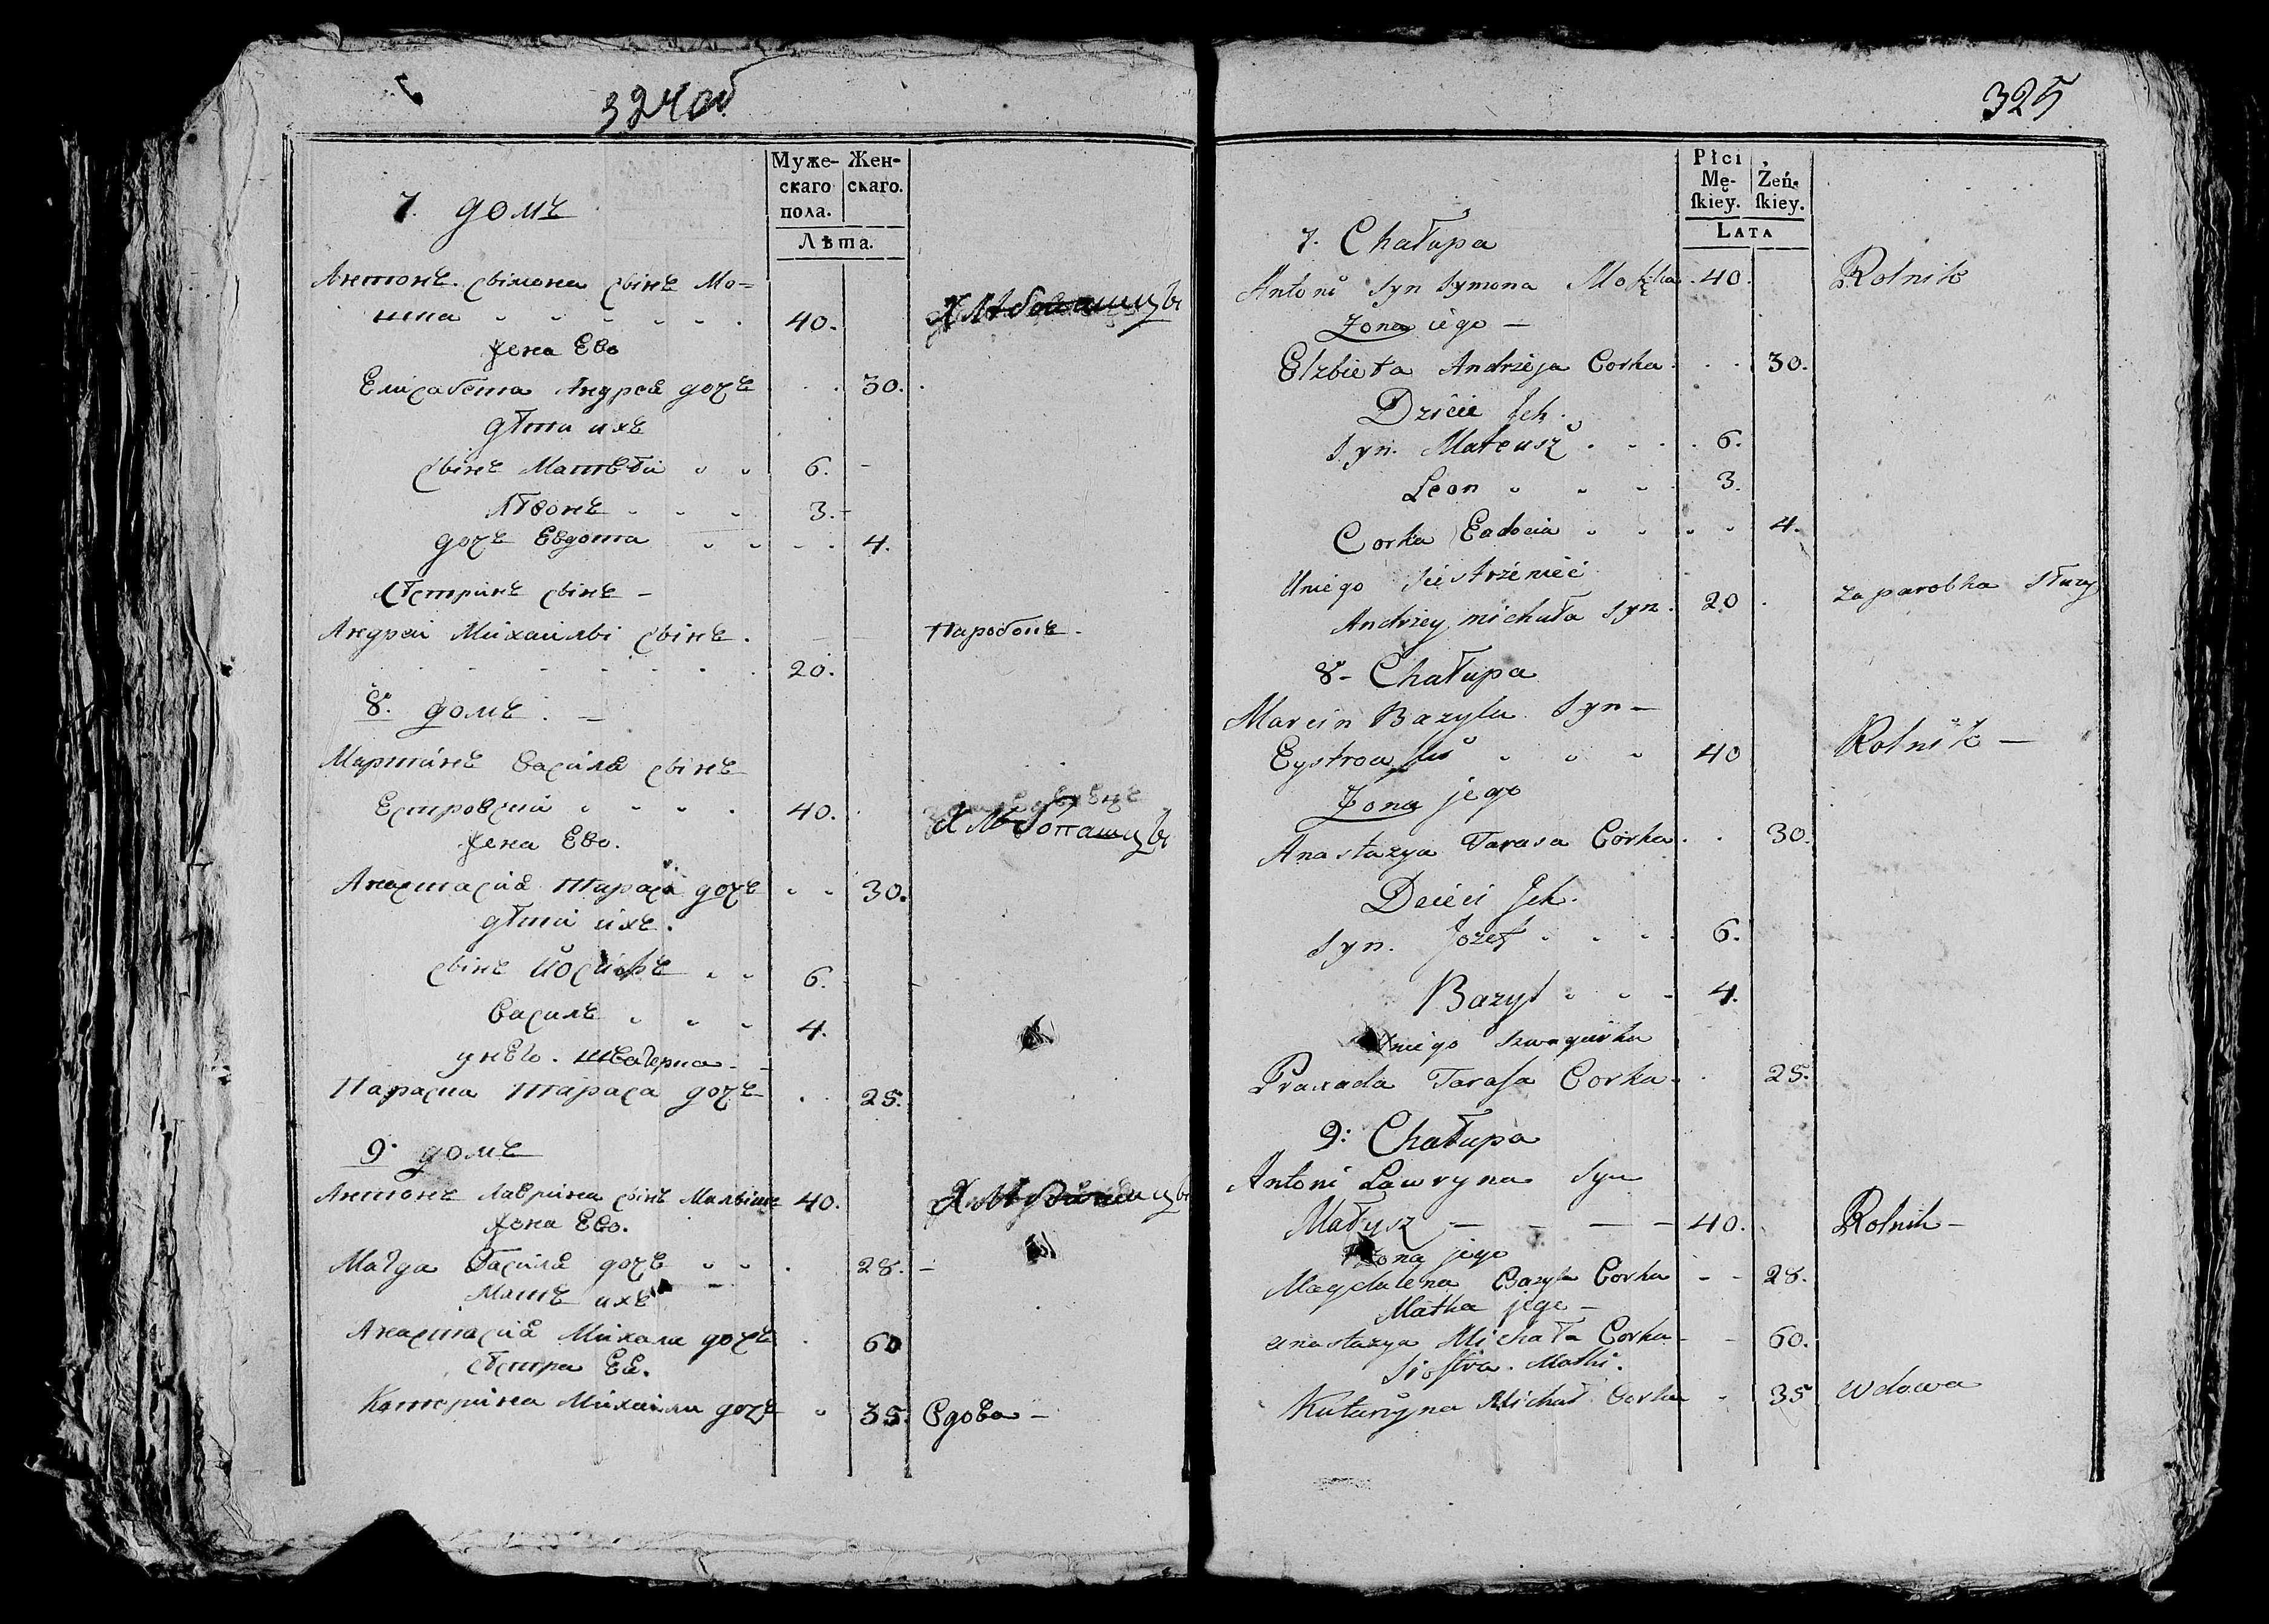 324об
Муже-
скаго
пола.
Жен-
скаго.
Лѣта.
7. домъ
Антонъ Сымона Сынъ Мо-
40.
Жена Ево
Елисабета Андрея дочъ 30.
дѣти ихъ
Сынъ Матвѣй 6.
Лѣвонъ 3.
дочъ Евдота 4.
Сѣстринъ Сынъ
Андрей Михайлы Сынъ. Паробокъ.
20.
8. домъ.
Мартинъ Василя Сынъ
Естровский 40. Хлѣбопашецъ
Жена Ево.
Анастасия Тараса дочъ 30.
дѣти ихъ.
Сынъ Йосифъ 6.
Василъ 4.
унѣго. швагерка
Параска Тараса дочъ 25.
9. домъ
Антонъ Лаврина Сынъ Малышъ 40. Хлѣбопашецъ
Жена Ево.
Магда Василя дочъ 28.
Мать ихъ
Анастасия Михала дочъ 60
Сѣстра Еѣ.
Катерина Михайла дочъ 35. Вдова
325
Płci
Mę-
ſkiey.
Żeń-
ſkiey.
LATA
7. Chałupa
Antoni Syn Symona 40. Rolnik
Żona iego
Elzbieta Andrzeja Corka 30.
Dziecie Ich.
Syn. Mateusz 6.
Leon 3.
Corka Eudocia 4.
Uniego Siestrzeniec
Andrzey michała Syn. 20 za parobka Służy
8 Chałupa
Marcin Bazyla Syn
Eystrowſki 40 Rolnik
Żona jego
Anastazya Tarasa Corka 30.
Dzieci Ich.
Syn. Jozef 6.
Bazyl 4.
Uniego Szwagierka
Praxada Taraſa Corka 25.
9: Chałupa
Antoni Lawryna Syn
Małysz 40. Rolnik
Żona jego
Magdalena Bazyla Corka 28.
Matka jego
Anastazya Michała Corka 60.
Sioſtra. Matki.
Katarzyna Michał Corka 35 wdowa